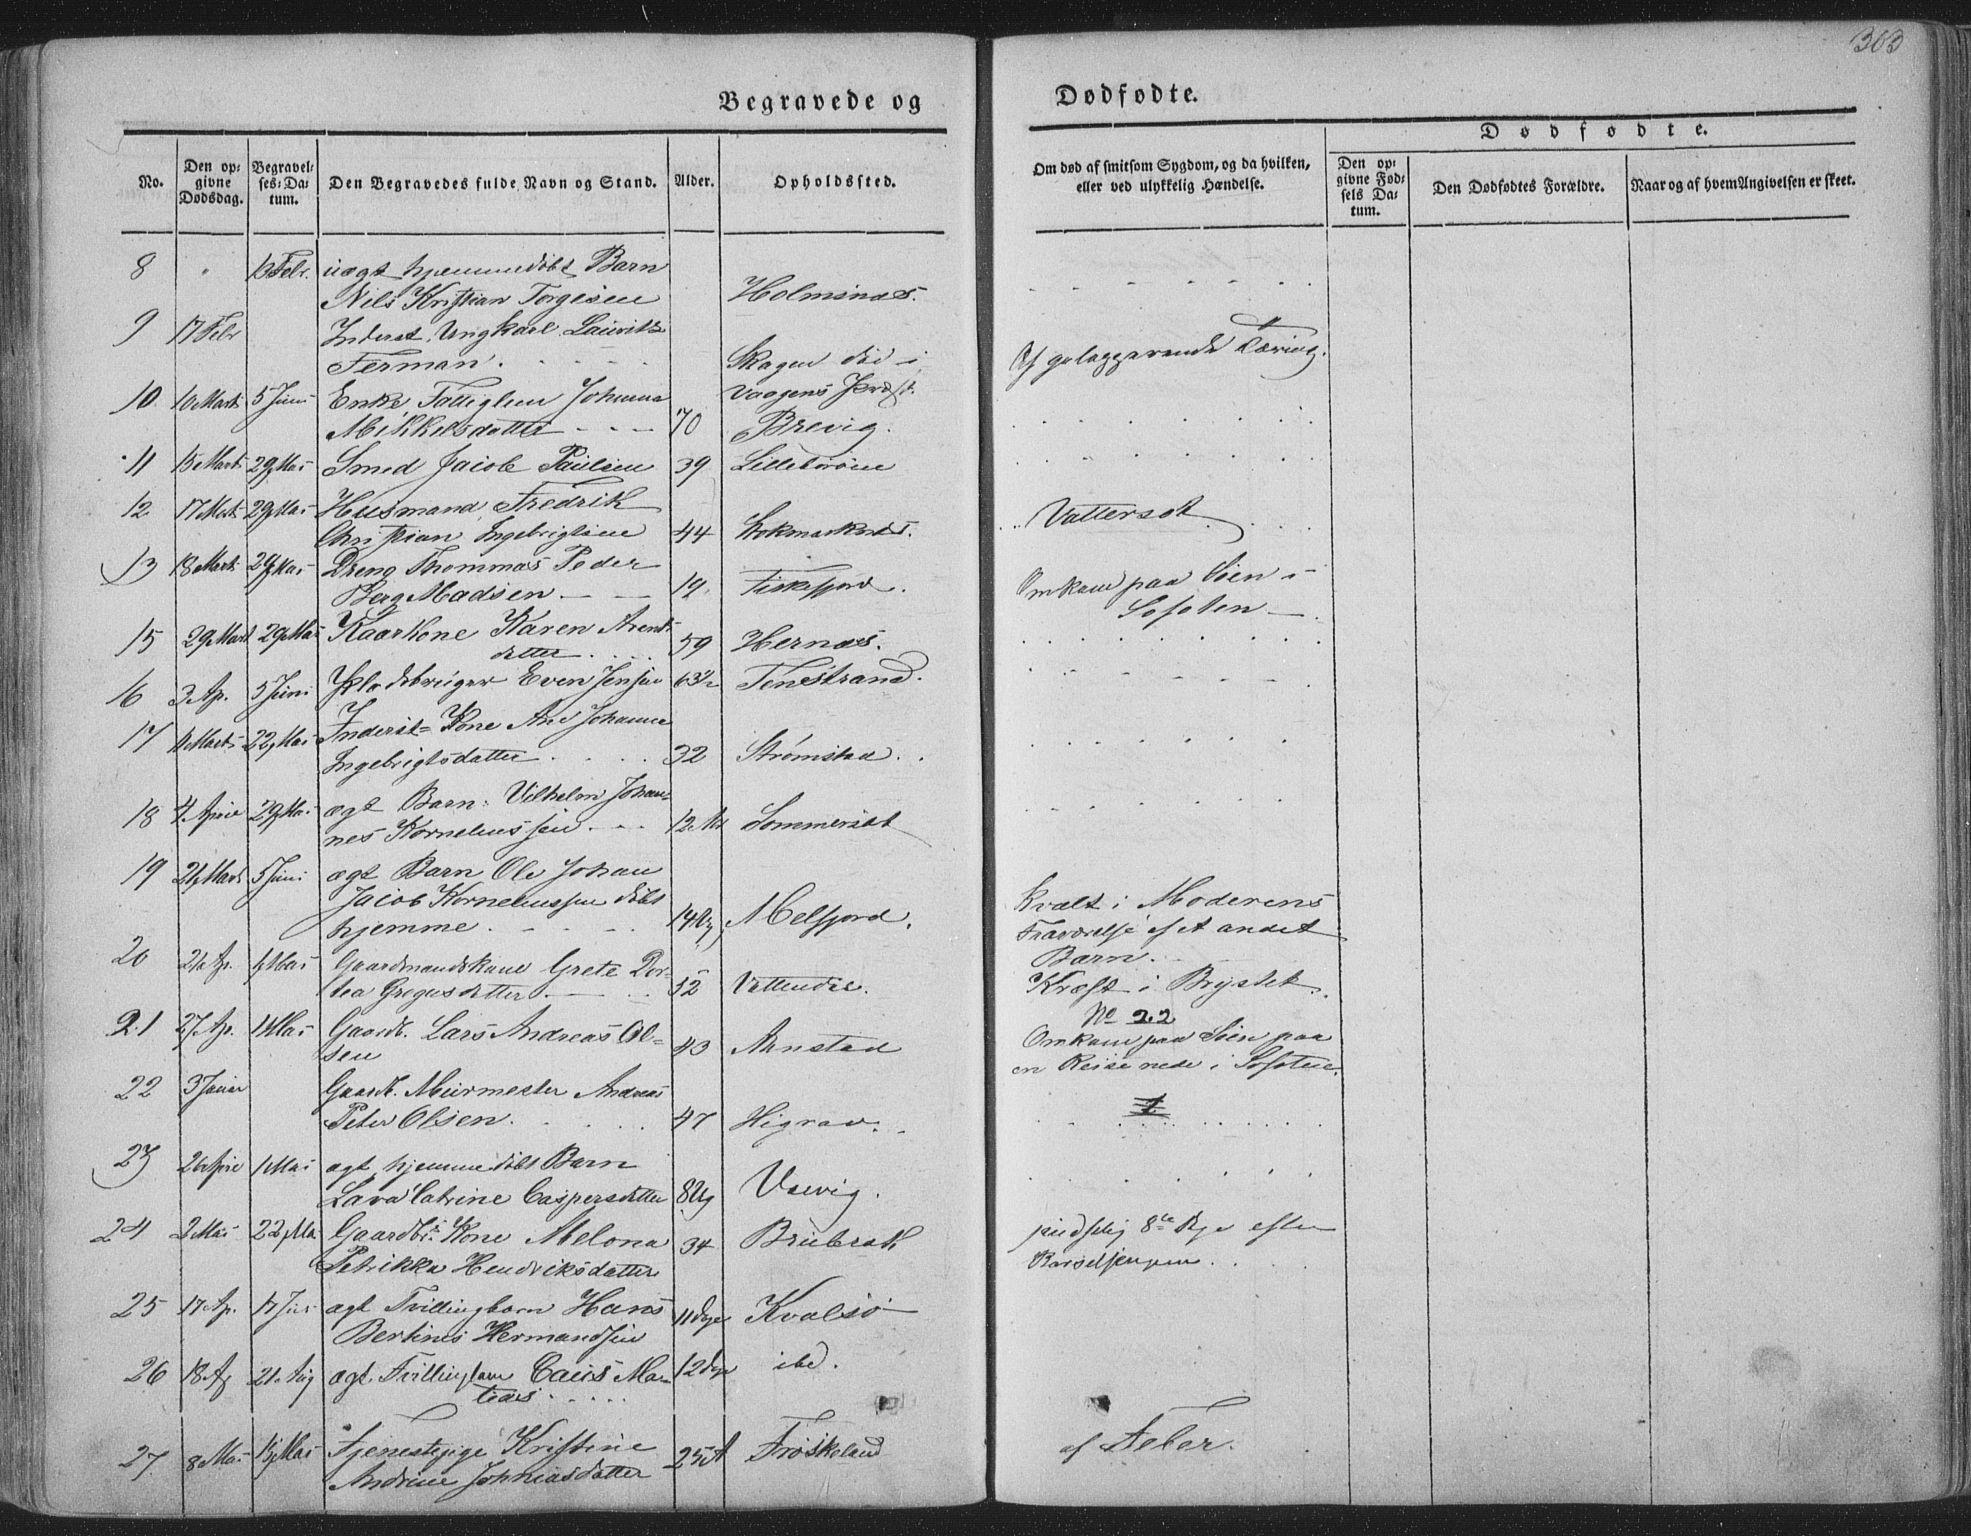 363
Begravede og
Dødfødte.
No.
Den op-
givne
Dødsdag.
Begravel-
ses-Da-
tum.
Den Begravedes fulde Navn og Stand.
Alder.
Opholdssted.
Om død af smitsom Sygdom, og da hvilken,
eller ved ulykkelig Hændelse.
Dødfødte.
Den op-
givne Fød-
sels Da-
tum.
Den Dødfødtes Forældre.
Naar og af hvem Angivelsen er skeet.
8 " 13 Febr. uægt hjemmedøbt Barn
Nils Kristian Torgesen Holmsnæs.
9 17 Febr Inderst. Ungkarl Lauritz
Ferman. Skagen død i
Vaagens Præst. Tæring.
10 10 Marts 5 Juni Enke Fattiglem Johanna
Mikkelsdatter 70 Brevig.
11 15 Marts 29 Mai Smed Jacob Paulsen 39
12 17 Marts 29 Mai Husmand Fredrik
Christian Ingebrigtsen 44 Stokmarknæs. Vattersot
13 18 Marts 29 Mai Dreng Thommas Peder
Berg Madsen 19. Fiskefjord. Omkom paa Søen i
Lofoten
15 29 Marts 29 Mai Kaarkone Karen Arents
datter 59 Hernæs.
16 3 Ap. 5 Juni Even Jensen 63½ Tenstrand.
17 11 Marts 22 Mai Inderst-Kone Ane Johanne
Ingebrigtsdatter 32 Strømstad.
18 4 April 29 Mai ægt Barn: Vilhelm Johan-
nes Korneliussen 12 Sommerset
19 Marts 5 Juni ægt Barn Ole Johan
Jacob Korneliussen døbt
hjemme. 14 Melfjord. kvalt i Moderens
Fraværelse af et andet
Barn.
20 Ap. Mai Gaardmandskone Grete Dor-
tea Gregusdatter 52 Vattendal. Kræft i Brystet.
No 22
21 27 Ap. 14 Mai Gaardb. Lars Andreas Ol-
sen 43 Aanstad Omkom paa Søen paa
en Reise nede i Lofoten.
22 3 Januar Gaardb. Muurmester Andreas
Peter Olsen. 47 Higrav.
23 26 April 1 Mai ægt hjemmedøbt Barn
Lava Catrine Caspersdatter 8 Ug
24 2 Mai 22 Mai Gaardbr. Kone Melona
Petrikka Hendriksdatter 34 pludselig 8de Dage efter
Barselsengen
25 17 Ap. 17 ægt Tvillingbarn Hans
Bertines Hermandsen 11 Dage Kvalsø
26 18 Ap 21 Aug ægt Tvillingbarn Caius Ma-
teas 12 Dage ibd.
27. 8 Mai Mai Tjenestepige Kristine
Andrine Johniasdatter 25 A Frøskeland af Feber.